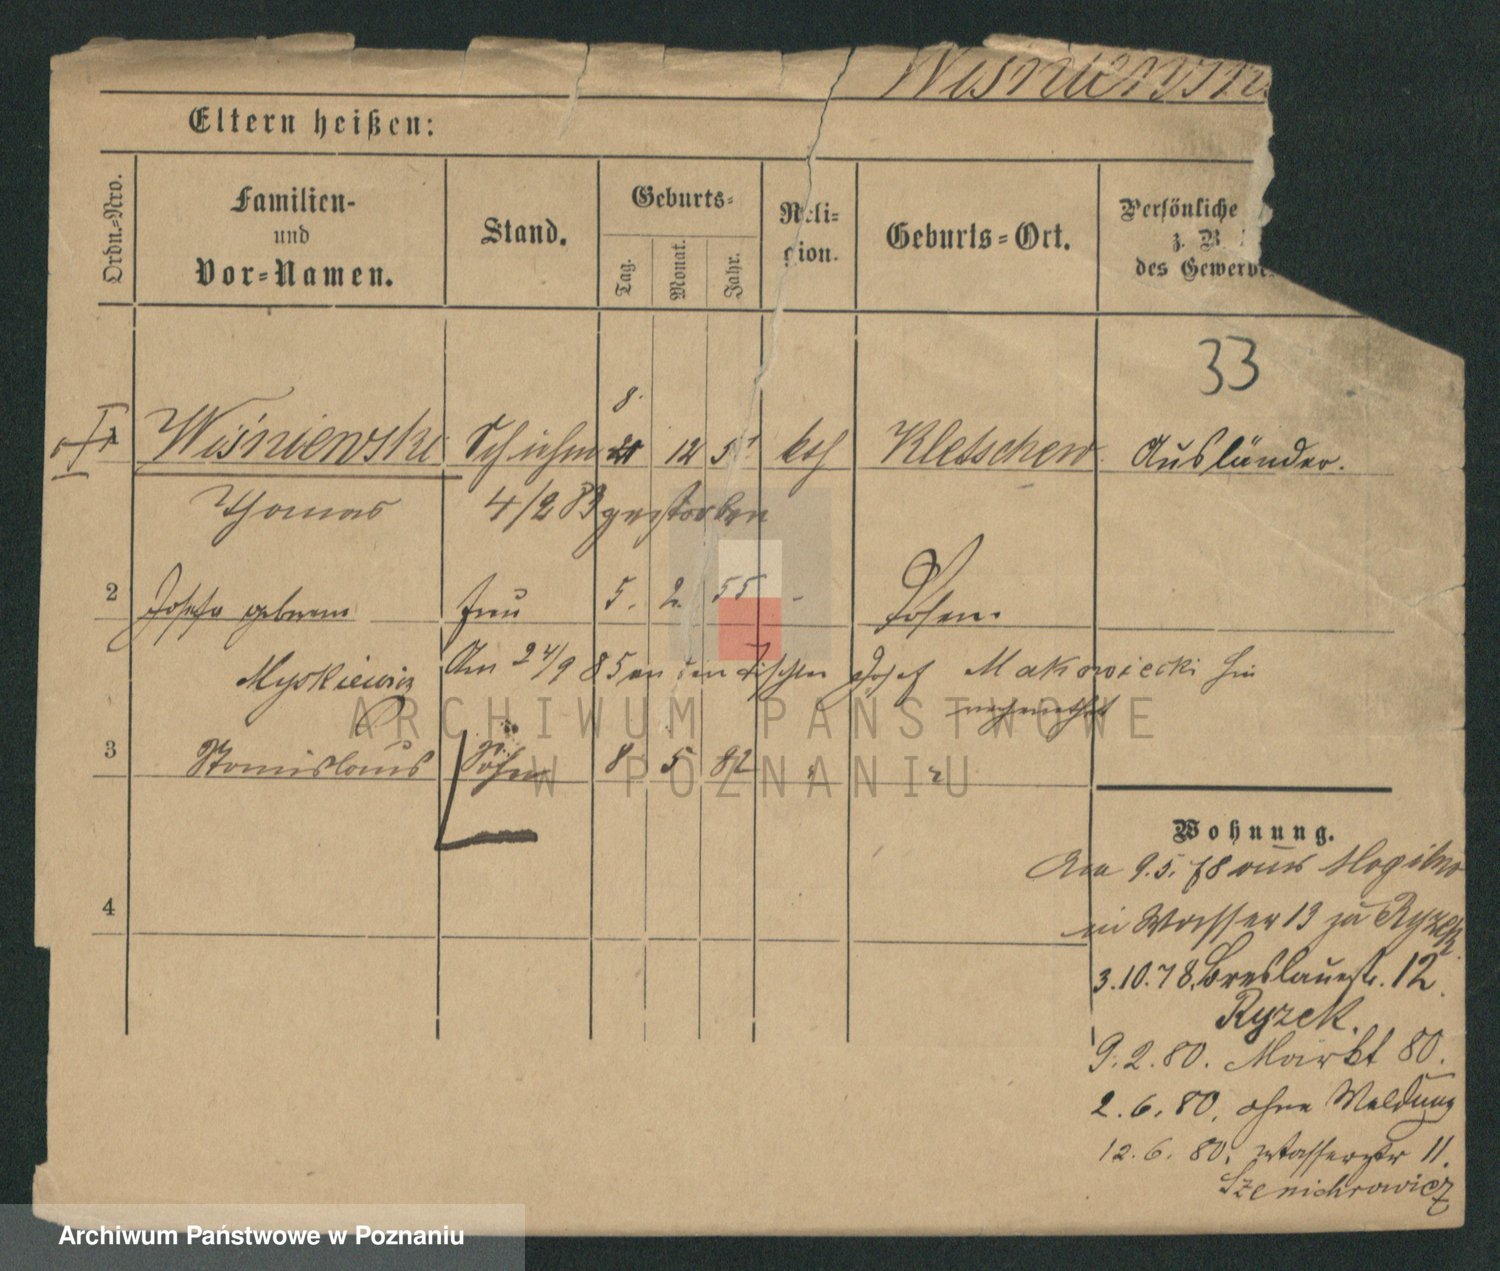 Wiśniewski
Eltern heißen:
Ordn.-Nro.
Familien-
und
Vor-Namen.
Stand.
Geburts-
Tag.
Monat.
Jahr.
Reli-
gion.
Geburts-Ort.
Persönliche
z. B.
des Gewerbe
33
1 Wiśniewski Schuhm 8. 21 12 51 kth Kletschew Ausländer.
Thomas 4/2 83 gestorben
2 Josefa geborene Frau 5. 2. 55 - Posen.
Myskiewicz Am 24/9 85 an den Tischler Josef Makowiecki hier
verheirathet
3 Stanislaus Sohn 8 5 82
4
Wohnung.
Am 9.5.78 aus Mogilno
in Wasser 19 zu Ryzek
3.10.78. Breslauerstr. 12.
Ryzek.
9.2.80. Markt 80.
2.6.80. ohne Meldung
12.6.80. Wasserstr 11.
ARCHIWUM PAŃSTWOWE
W POZNANIU
Archiwum Państwowe w Poznaniu